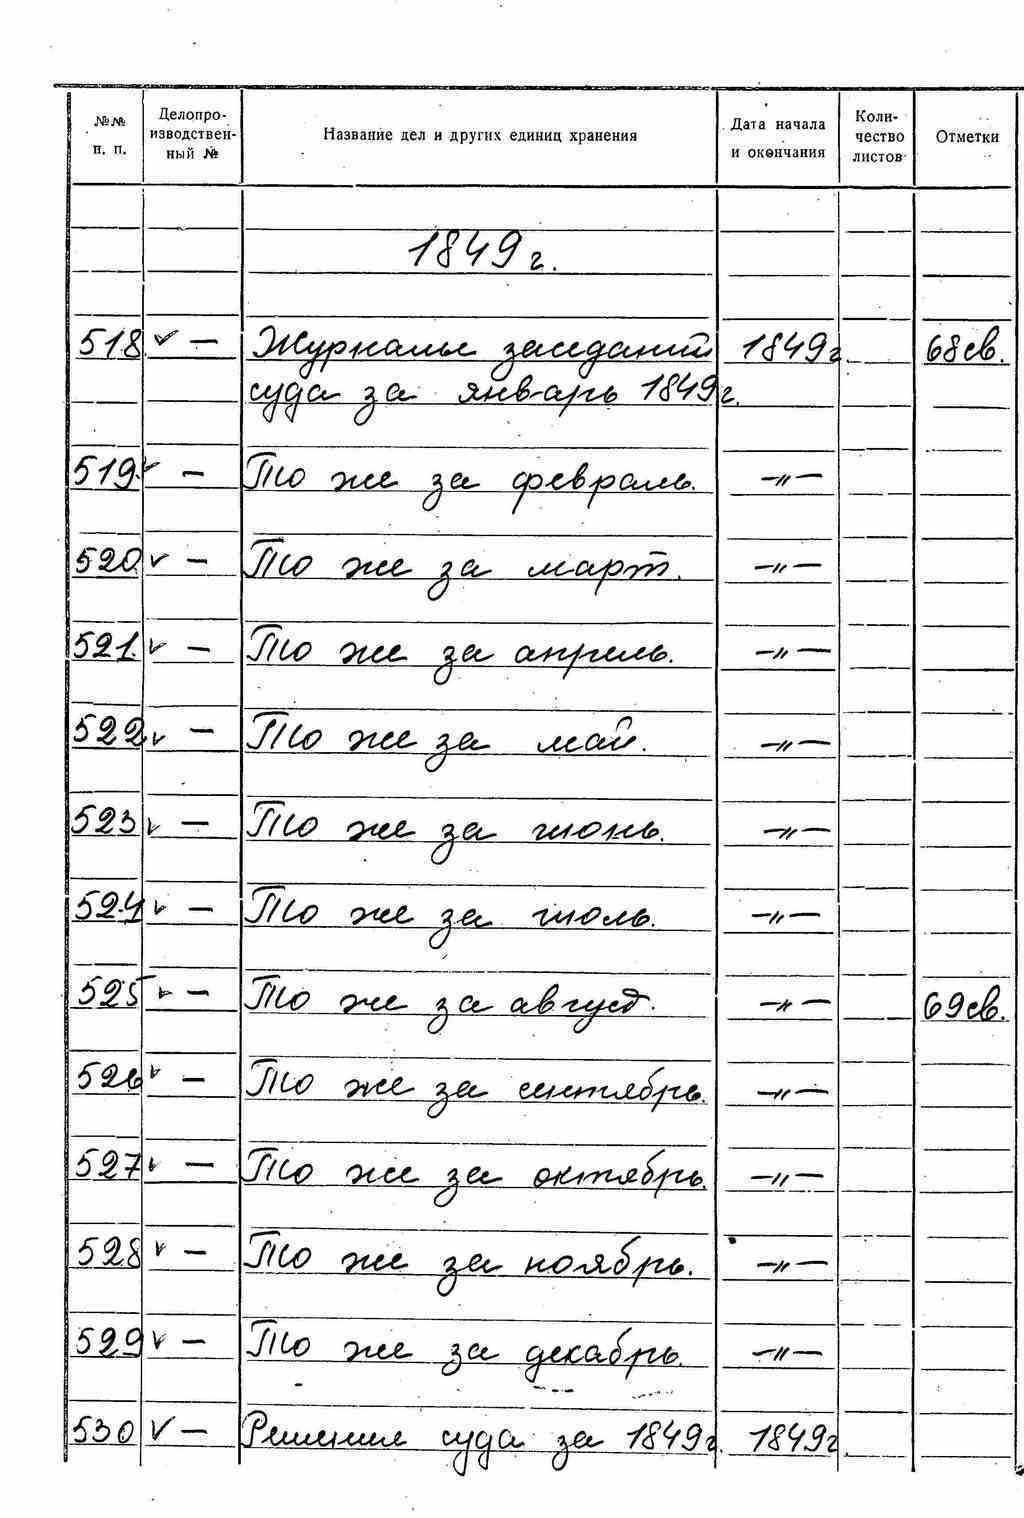 №№ п. п. Делопроизводственный № Название дел и других единиц хранения Дата начала и окончания Количество листов Отметки
1849 г.
518 ✓ — Журналы заседаний 1849 г. 68 св.
суда за январь 1849 г.
519. ✓ — То же за февраль. —〃—
520. ✓ — То же за март. —〃—
521. ✓ — То же за апрель. —〃—
522 ✓ — То же за май. —〃—
523 ✓ — То же за июнь. —〃—
524 ✓ — То же за июль. —〃—
525 ✓ — То же за август. —〃— 69 св.
526 ✓ — То же за сентябрь. —〃—
527 ✓ — То же за октябрь. —〃—
528 ✓ — То же за ноябрь. —〃—
529 ✓ — То же за декабрь. —〃—
530 ✓ — Решения суда за 1849 г. 1849 г.